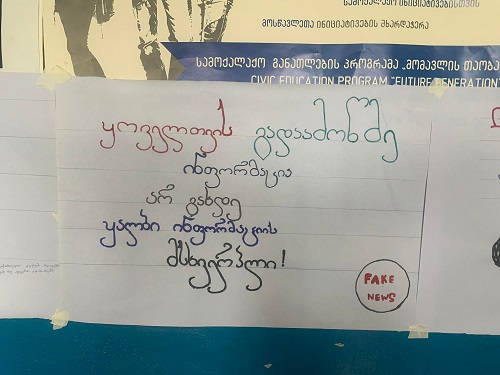 სამოქალაქო ინიციატივებისთვის
მოსწავლეთა ინიციატივების მხარდაჭერა
სამოქალაქო განათლების პროგრამა „მომავლის თაობა
CIVIC EDUCATION PROGRAM "FUTURE GENERATION"
ყოველთვის გადაამოწმე
ინფორმაცია
არ გახდე
ყალბი ინფორმაციის
მსხვერპლი!
FAKE
NEWS